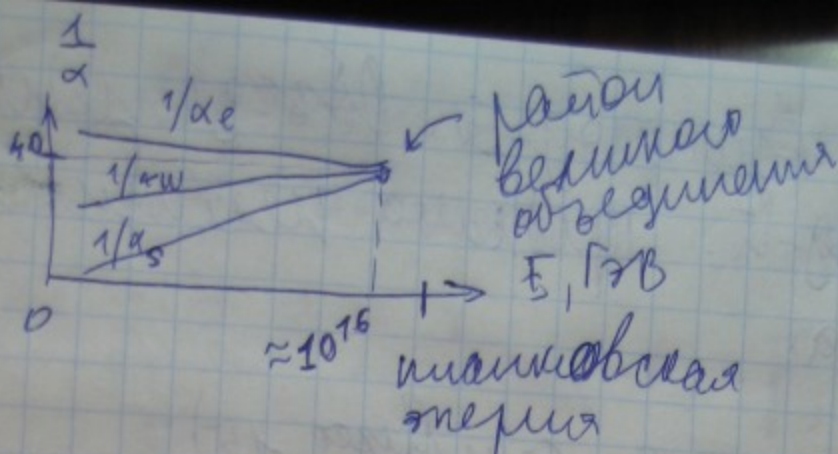 1/α
1/αe
40
1/αw
1/αs
0
≈10¹⁶
район
великого
объединения
E, ГэВ
планковская
энергия